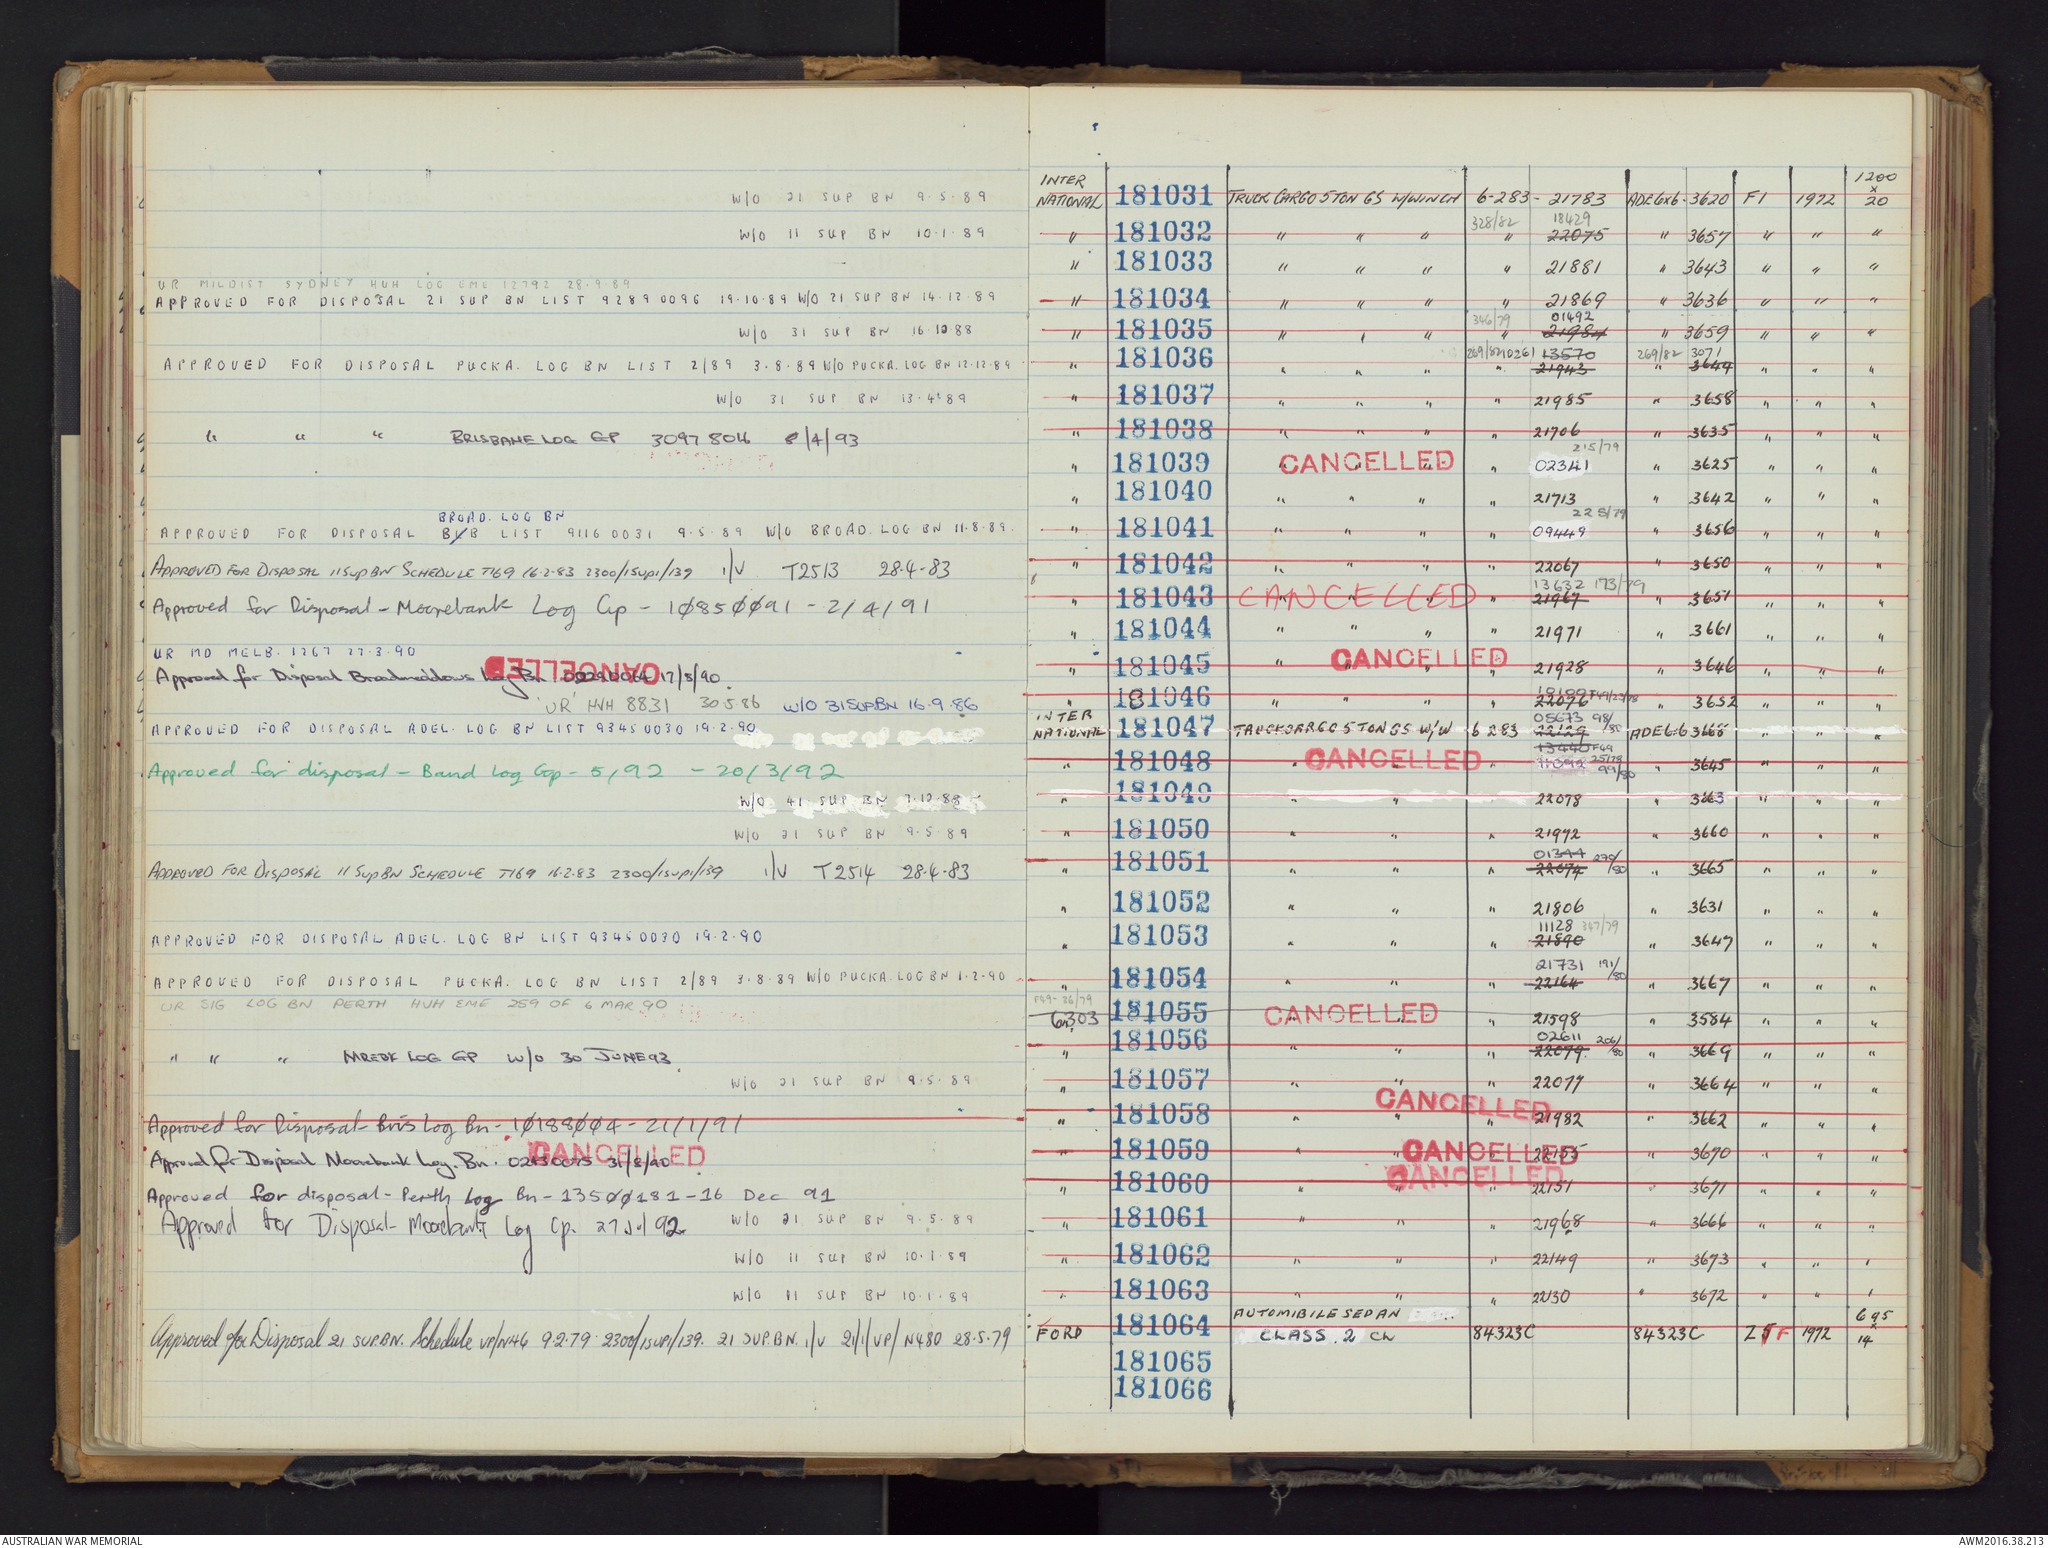 W/O 21 SUP BN 9.5.89
W/O 11 SUP BN 10.1.89
UR MILDIST SYDNEY HUH LOG EME 12792 28.9.89
APPROVED FOR DISPOSAL 21 SUP BN LIST 92890096 19.10.89 W/O 21 SUP BN 14.12.89
W/O 31 SUP BN 16.10.88
APPROVED FOR DISPOSAL PUCKA. LOG BN LIST 2/89 3.8.89 W/O PUCKA. LOG BN 12.12.89
W/O 31 SUP BN 13.4.89
" " " BRISBANE LOG GP 3097804 8/4/93
BROAD. LOG BN
APPROVED FOR DISPOSAL BLB LIST 91160031 9.5.89 W/O BROAD. LOG BN 11.8.89.
APPROVED FOR DISPOSAL 11 SUP BN SCHEDULE T169 16.2.83 2300/1SUP1/139 1/V T2513 28.4.83
Approved for Disposal - Moorebank Log Gp - 10850091 - 2/4/91
UR MD MELB. 1267 27.3.90
CANCELLED
Approved for Disposal Broadmeddows Log Bn 17/5/90.
'UR' HVH 8831 30.5.86 W/O 31 SUP BN 16.9.86
APPROVED FOR DISPOSAL ADEL. LOG BN LIST 93450030 19.2.90
Approved for disposal - Band Log Gp - 5/92 - 20/3/92
W/O 41 SUP BN 7.12.88
W/O 21 SUP BN 9.5.89
APPROVED FOR DISPOSAL 11 SUP BN SCHEDULE T169 16.2.83 2300/1SUP1/139 1/V T2514 28.4.83
APPROVED FOR DISPOSAL ADEL. LOG BN LIST 93450030 19.2.90
APPROVED FOR DISPOSAL PUCKA. LOG BN LIST 2/89 3.8.89 W/O PUCKA. LOG BN 1.2.90
UR SIG LOG BN PERTH HUH EME 259 OF 6 MAR 90
" " " MREBK LOG GP W/O 30 JUNE 93.
W/O 21 SUP BN 9.5.89
Approved for Disposal - Bris Log Bn - 10188004 - 21/1/91
CANCELLED
Approval for Disposal Moorebank Log. Bn. 02130075 31/8/90.
Approved for disposal - Perth Log Bn - 13500181 - 16 Dec 91
Approved for Disposal - Moorebank Log Gp. 27 Jul 92 W/O 21 SUP BN 9.5.89
W/O 11 SUP BN 10.1.89
W/O 11 SUP BN 10.1.89
Approved for Disposal 21 SUP.BN. Schedule VP/N46 9.2.79 2300/1SUP1/139. 21 SUP.BN. 1/V 21/1/VP/N480 28.5.79
INTER NATIONAL 181031 TRUCK CARGO 5 TON GS W/WINCH 6-283- 21783 ADE 6x6- 3620 F1 1972 1200 x 20
" 181032 " " " 328/82 " 18429 22075 " 3657 " " "
" 181033 " " " " 21881 " 3643 " " "
" 181034 " " " " 21869 " 3636 " " "
" 181035 " " " 346/79 " 01492 21984 " 3659 " " "
" 181036 " " " 269/82 10261 " 13570 21943 269/82 3071 " 3649 " " "
" 181037 " " " " 21985 " 3658 " " "
" 181038 " " " " 21706 " 3635 " " "
" 181039 CANCELLED " " " " 02341 215/79 " 3625 " " "
" 181040 " " " " 21713 " 3642 " " "
" 181041 " " " " 09449 225/79 " 3656 " " "
" 181042 " " " " 22067 " 3650 " " "
" 181043 CANCELLED " 13632 173/79 21967 " 3651 " " "
" 181044 " " " " 21971 " 3661 " " "
" 181045 " CANCELLED " 21928 " 3646 " " "
" 181046 " " " " 22076 " 3652 " " "
INTER NATIONAL 181047 TRUCK CARGO 5 TON GS W/W 6 283 05673 98/80 22129 ADE 6x6 3668 " " "
" 181048 CANCELLED " 13440 F49 25/79 99/80 " 3645 " " "
" 181049 " " " 22078 " 3663 " " "
" 181050 " " " 21972 " 3660 " " "
" 181051 " " " 01344 270/80 22074 " 3665 " " "
" 181052 " " " 21806 " 3631 " " "
" 181053 " " " 11128 347/79 21890 " 3647 " " "
" 181054 " " " 21731 191/80 22164 " 3667 " " "
F49-26/79 6303 181055 CANCELLED " 21598 " 3584 " " "
" 181056 " " " 02611 206/80 22079 " 3669 " " "
" 181057 " " " 22077 " 3664 " " "
" 181058 " CANCELLED " 21982 " 3662 " " "
" 181059 " CANCELLED " 22155 " 3670 " " "
" 181060 " CANCELLED " 22151 " 3671 " " "
" 181061 " " " 21968 " 3666 " " "
" 181062 " " " 22149 " 3673 " " "
" 181063 " " " 2230 " 3672 " " "
FORD 181064 AUTOMIBILE SEDAN CLASS. 2 CL 84323C 84323C Z5F 1972 695 x 14
181065
181066
AUSTRALIAN WAR MEMORIAL
AWM2016.38.213